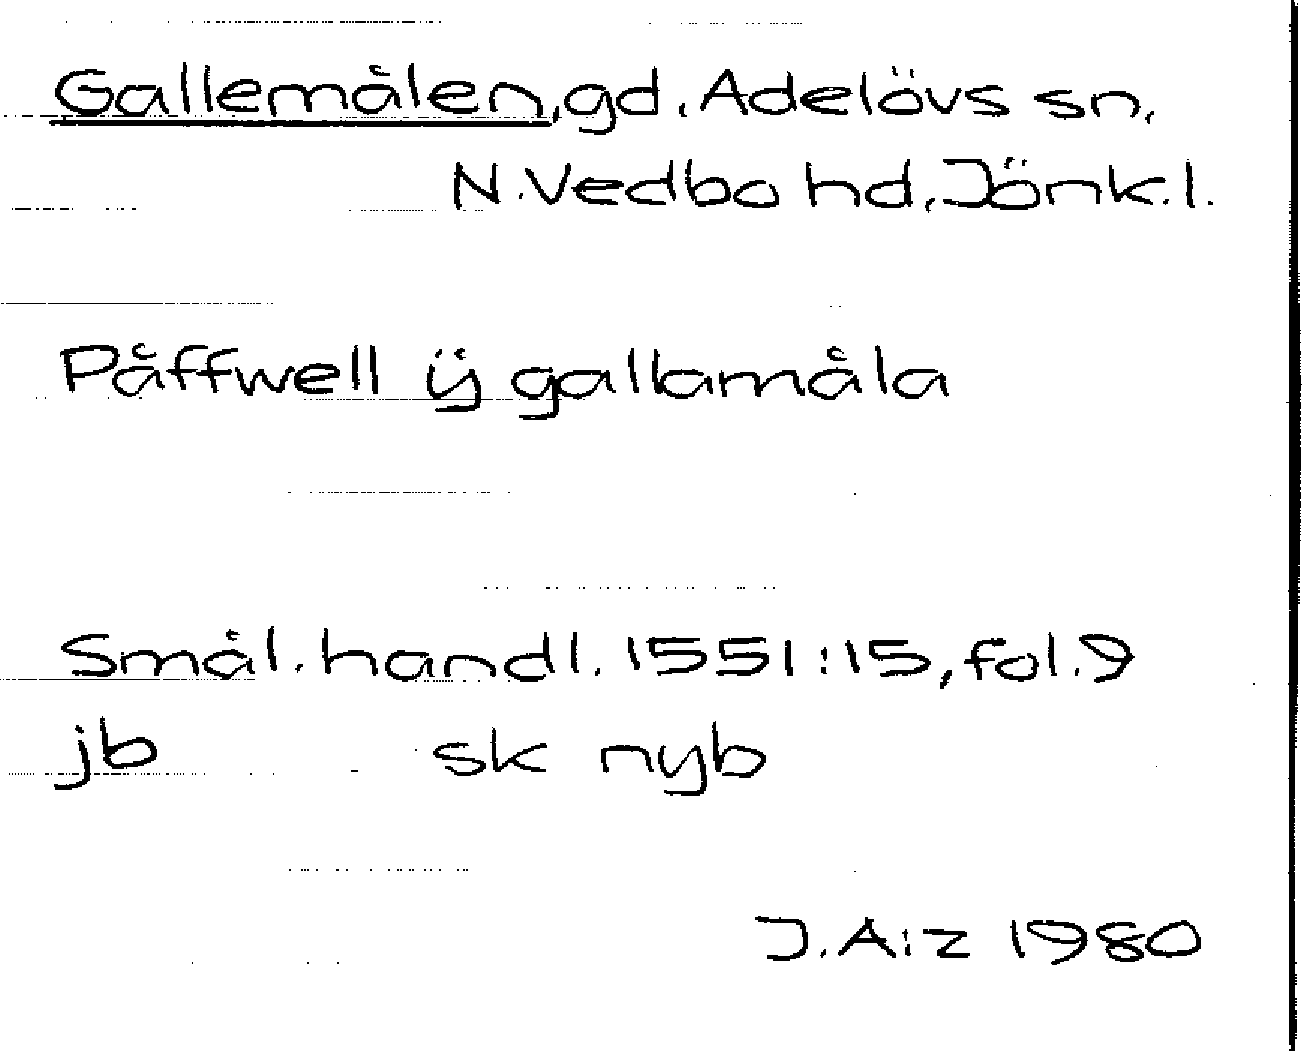 Gallemålen, gd, Adelövs sn,
N. Vedbo hd, Jönk. l.
Påffwell ÿ gallamåla
Smål. handl. 1551:15, fol. 9
jb sk nyb
J. A:z 1980